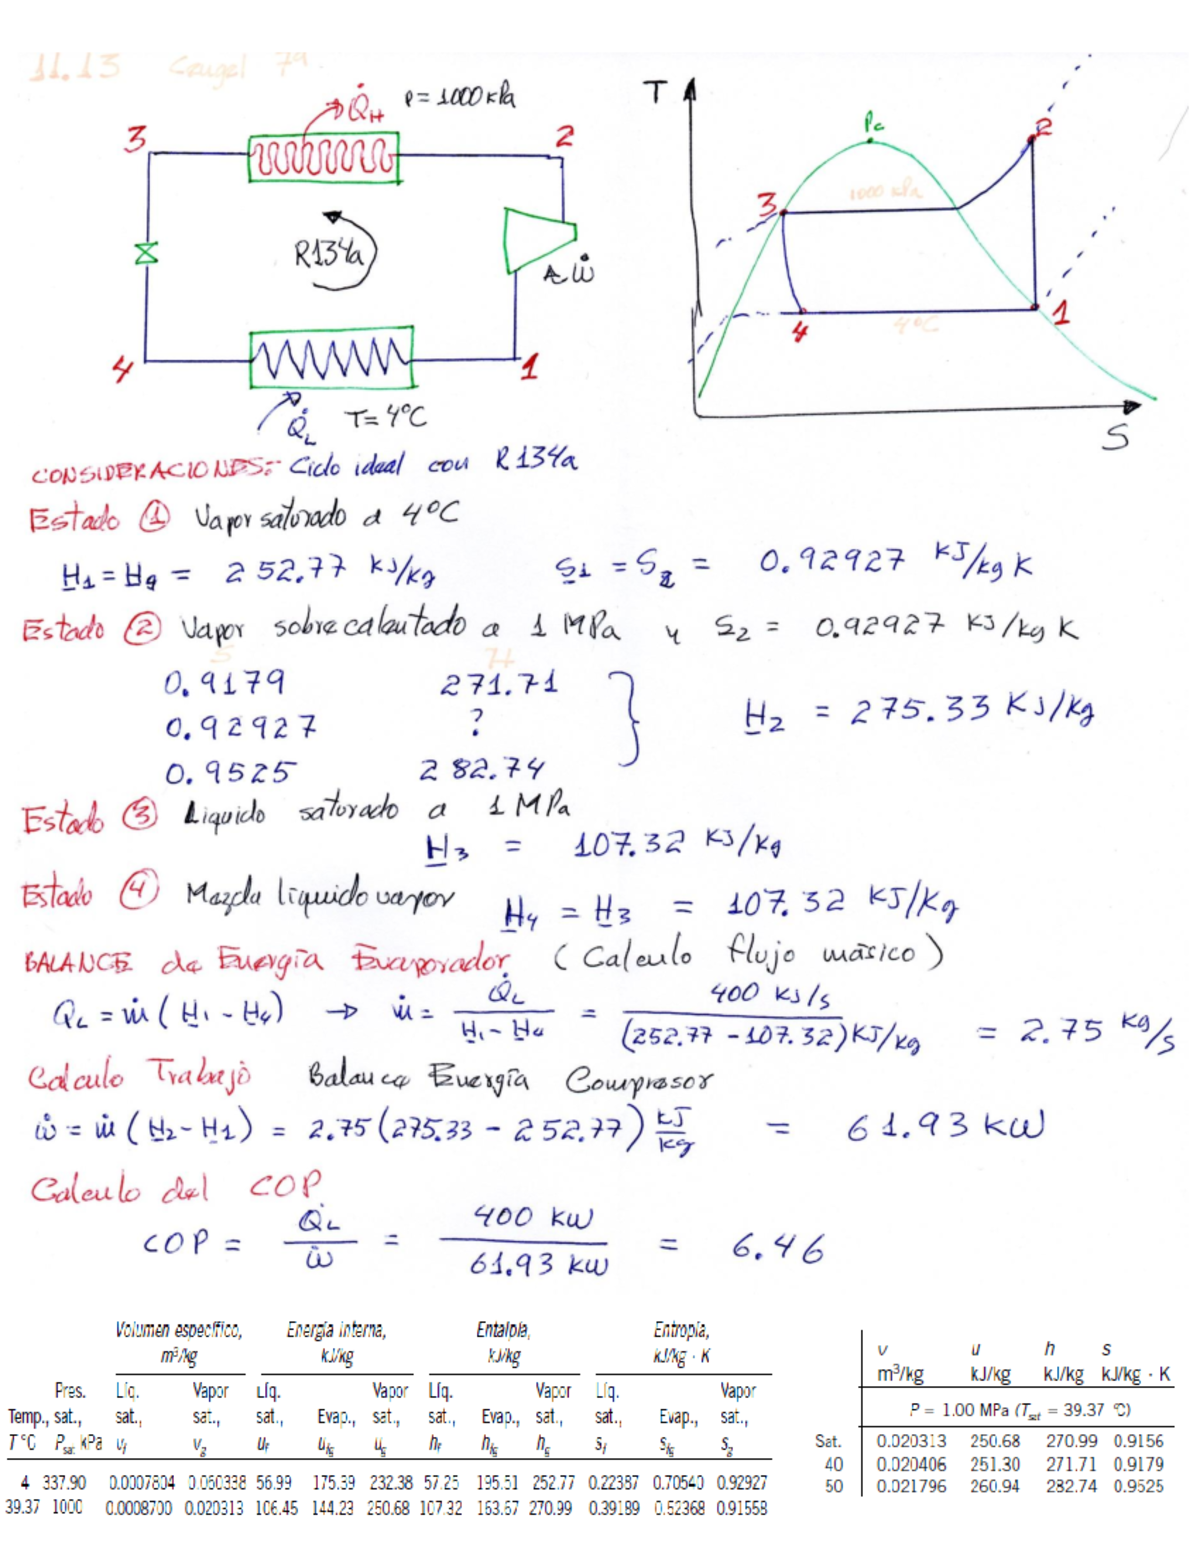 11.13 Cengel 7ª
Q̇H P = 1000 kPa
3 2
R134a
Ẇ
4 1
Q̇L T = 4ºC
T
Pc
2
3 1000 kPa
4 4ºC 1
S
CONSIDERACIONES:- Ciclo ideal con R134a
Estado ① Vapor saturado a 4ºC
H1 = Hg = 252.77 kJ/kg S1 = S2 = 0.92927 KJ/kg K
Estado ② Vapor sobrecalentado a 1 MPa y S2 = 0.92927 KJ/kg K
S H
0.9179 271.71
0.92927 ? H2 = 275.33 KJ/kg
0.9525 282.74
Estado ③ Liquido saturado a 1 MPa
H3 = 107.32 KJ/kg
Estado ④ Mezcla liquido vapor H4 = H3 = 107.32 KJ/Kg
BALANCE de Energía Evaporador (Calculo flujo másico)
QL = ṁ (H1 - H4) → ṁ = Q̇L / (H1 - H4) = 400 KJ/s / (252.77 - 107.32) KJ/kg = 2.75 kg/s
Calculo Trabajo Balance Energía Compresor
ẇ = ṁ (H2 - H1) = 2.75 (275.33 - 252.77) KJ/kg = 61.93 KW
Calculo del COP
COP = Q̇L / ẇ = 400 KW / 61.93 KW = 6.46
Volumen específico, Energía interna, Entalpía, Entropía,
m³/kg kJ/kg kJ/kg kJ/kg · K
Pres. Líq. Vapor Líq. Vapor Líq. Vapor Líq. Vapor
Temp., sat., sat., sat., sat., Evap., sat., sat., Evap., sat., sat., Evap., sat.,
T °C Psat kPa vf vg uf ufg ug hf hfg hg sf sfg sg
4 337.90 0.0007804 0.060338 56.99 175.39 232.38 57.25 195.51 252.77 0.22387 0.70540 0.92927
39.37 1000 0.0008700 0.020313 106.45 144.23 250.68 107.32 163.67 270.99 0.39189 0.52368 0.91558
v u h s
m³/kg kJ/kg kJ/kg kJ/kg · K
P = 1.00 MPa (Tsat = 39.37 °C)
Sat. 0.020313 250.68 270.99 0.9156
40 0.020406 251.30 271.71 0.9179
50 0.021796 260.94 282.74 0.9525